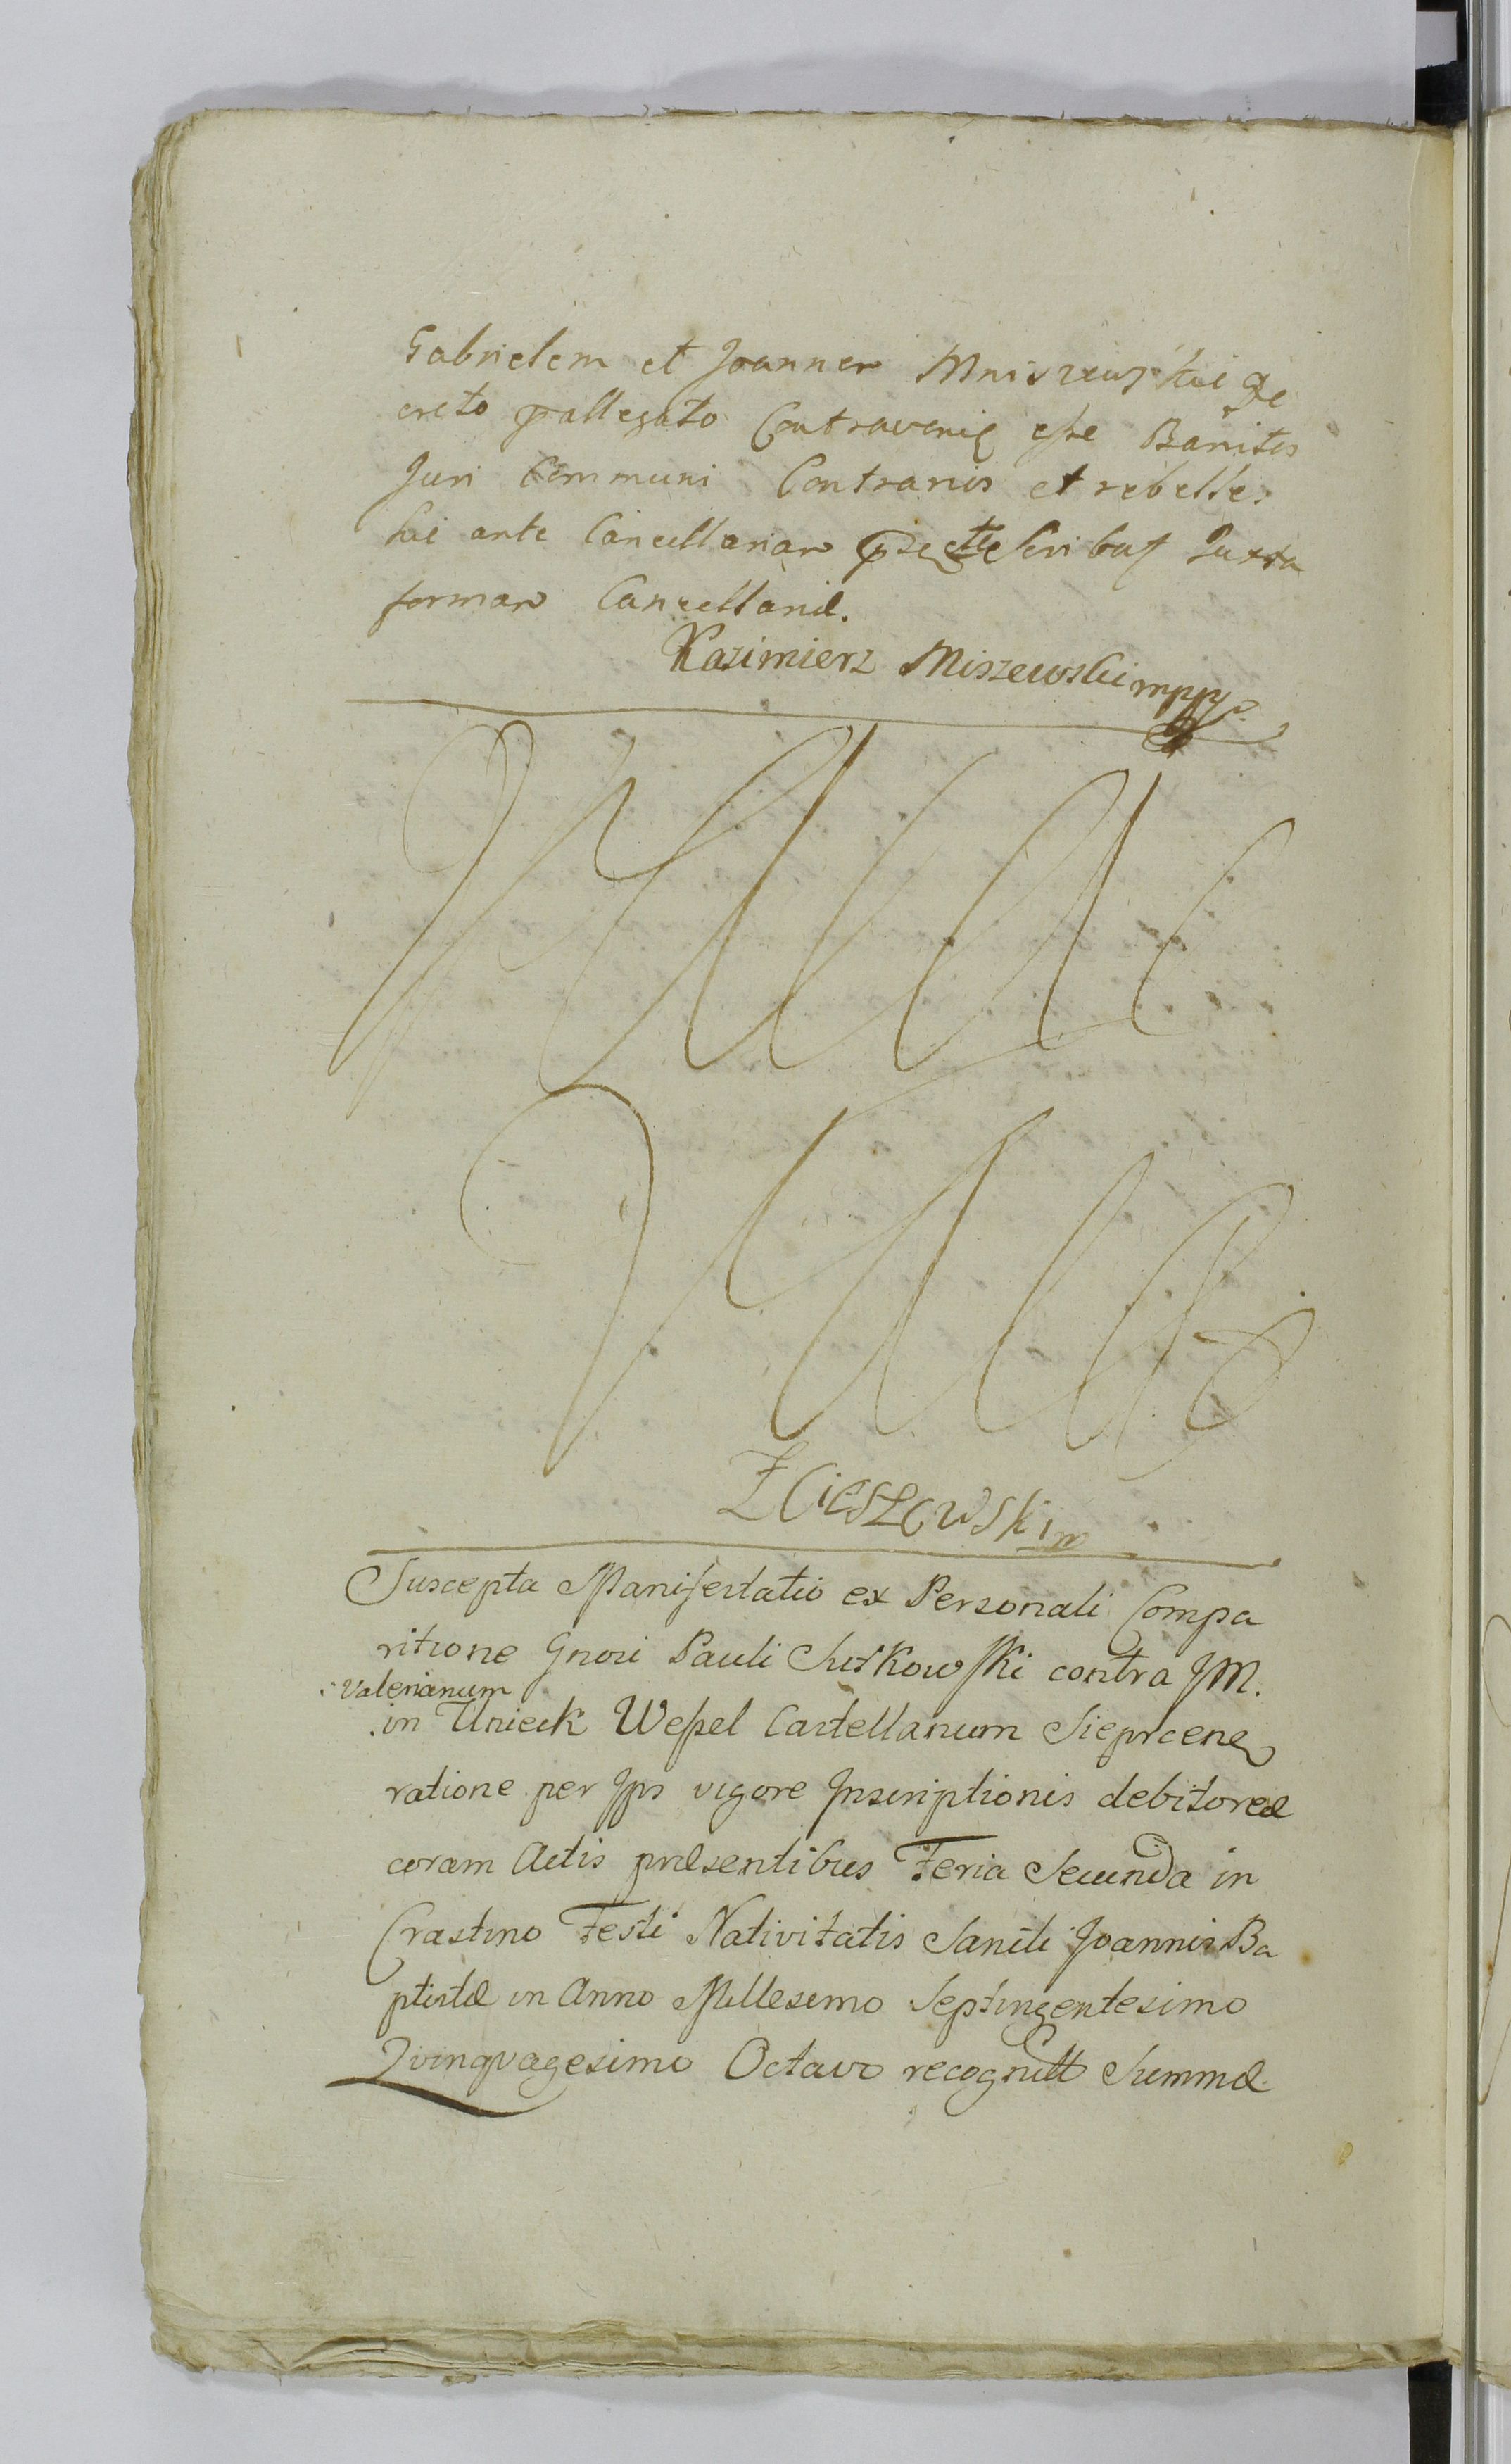 Gabrielem et Joannem Mniszewskie De
creto pallegato Contravenie esse Banitos
Juri Communi Contrarios et rebelles
hic ante Cancellariam Scribat Juxta
formam Cancellariæ.
Kazimierz Miszewski mpp
ZCieszewski m
Suscepta Manifestatio ex Personali Compa
ritione Gnosi Pauli Sutkowski contra JM.
Valerianum
in Unieck Wessel Castellanum Sieprcen
ratione per Jps vigore Inscriptionis debitoreæ
coram Actis præsentibus Feria Secunda in
Crastino Festi Nativitatis Sancti Joannis Ba
ptistæ in Anno Millesimo Septingentesimo
Qvinqvagesimo Octavo recognitt Summæ